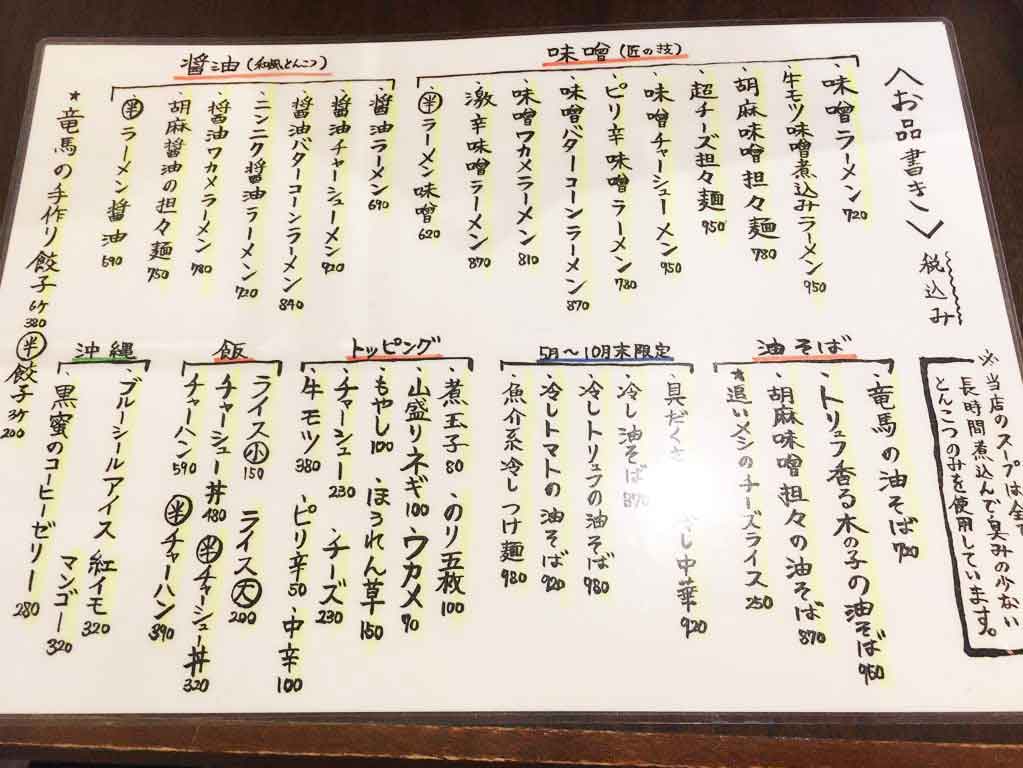 〈お品書き〉
税込み
※当店のスープは全て
長時間煮込んで臭みの少ない
とんこつのみを使用しています。
味噌(匠の技)
味噌ラーメン 720
牛モツ味噌煮込みラーメン 950
胡麻味噌担々麺 780
超チーズ担々麺 950
味噌チャーシューメン 950
ピリ辛味噌ラーメン 780
味噌バターコーンラーメン 870
味噌ワカメラーメン 810
激辛味噌ラーメン 870
半ラーメン味噌 620
醤油(和風とんこつ)
醤油ラーメン 690
醤油チャーシューメン 920
醤油バターコーンラーメン 840
ニンニク醤油ラーメン 720
醤油ワカメラーメン 780
胡麻醤油の担々麺 750
半ラーメン醤油 590
★竜馬の手作り餃子 6ケ 380 半餃子 3ケ 200
油そば
竜馬の油そば
トリュフ香る木の子の油そば 950
胡麻味噌担々の油そば 870
★追いメシのチーズライス 250
5月〜10月末限定
具だくさ し中華 920
冷し油そば 870
冷しトリュフの油そば 980
冷しトマトの油そば 920
魚介系冷しつけ麺 980
トッピング
煮玉子 80 のり五枚 100
山盛りネギ 100 ワカメ 70
もやし 100 ほうれん草 150
チャーシュー 230 チーズ 230
牛モツ 380 ピリ辛 50・中辛 100
飯
ライス小 150 ライス大 200
チャーシュー丼 480 半チャーシュー丼 320
チャーハン 590 半チャーハン 390
沖縄
ブルーシールアイス 紅イモ 320
マンゴー 320
黒蜜のコーヒーゼリー 280